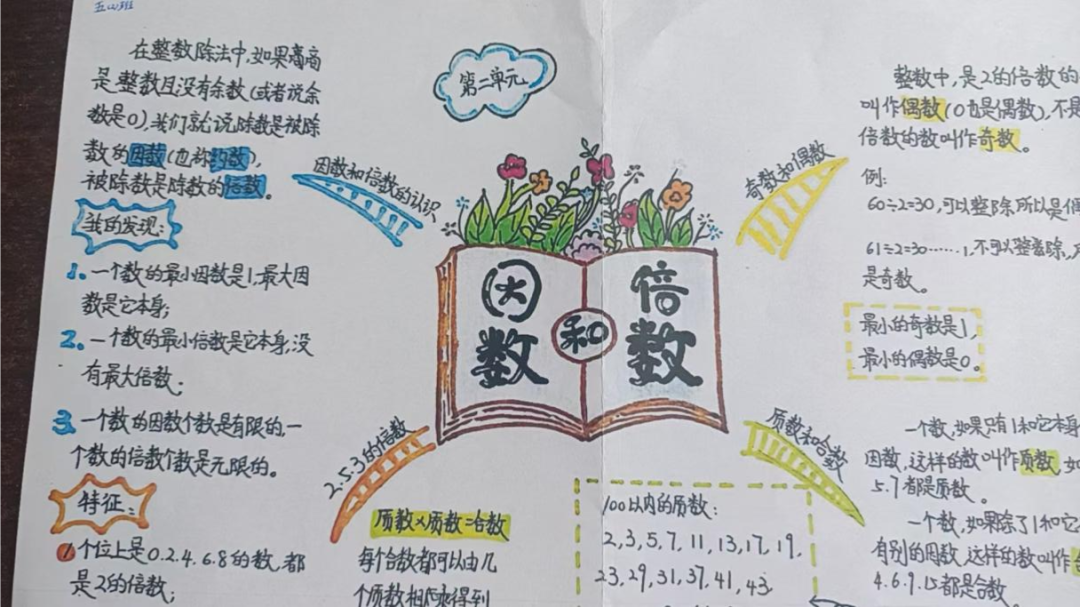 五山班
第二单元
在整数除法中,如果商
是整数且没有余数(或者说余
数是0),我们就说除数是被除
数的因数(也称约数),
被除数是除数的倍数。
我的发现:
1. 一个数的最小因数是1,最大因
数是它本身;
2. 一个数的最小倍数是它本身,没
有最大倍数.
3. 一个数的因数个数是有限的,一
个数的倍数个数是无限的。
特征:
1 个位上是0.2.4.6.8的数,都
是2的倍数;
因数和倍数的认识
因数和倍数
2.5.3的倍数
质数×质数=合数
每个合数都可以由几
个质数相乘得到
奇数和偶数
整数中,是2的倍数的
叫作偶数(0也是偶数),不是
倍数的数叫作奇数。
例:
60÷2=30,可以整除所以是偶
61÷2=30……1,不可以整除,
是奇数。
最小的奇数是1,
最小的偶数是0。
质数和合数
一个数,如果只有1和它本身
因数,这样的数叫作质数,如
5.7都是质数。
一个数,如果除了1和它
有别的因数,这样的数叫作
4.6.9.15都是合数。
100以内的质数:
2,3,5,7,11,13,17,19,
23,29,31,37,41,43,